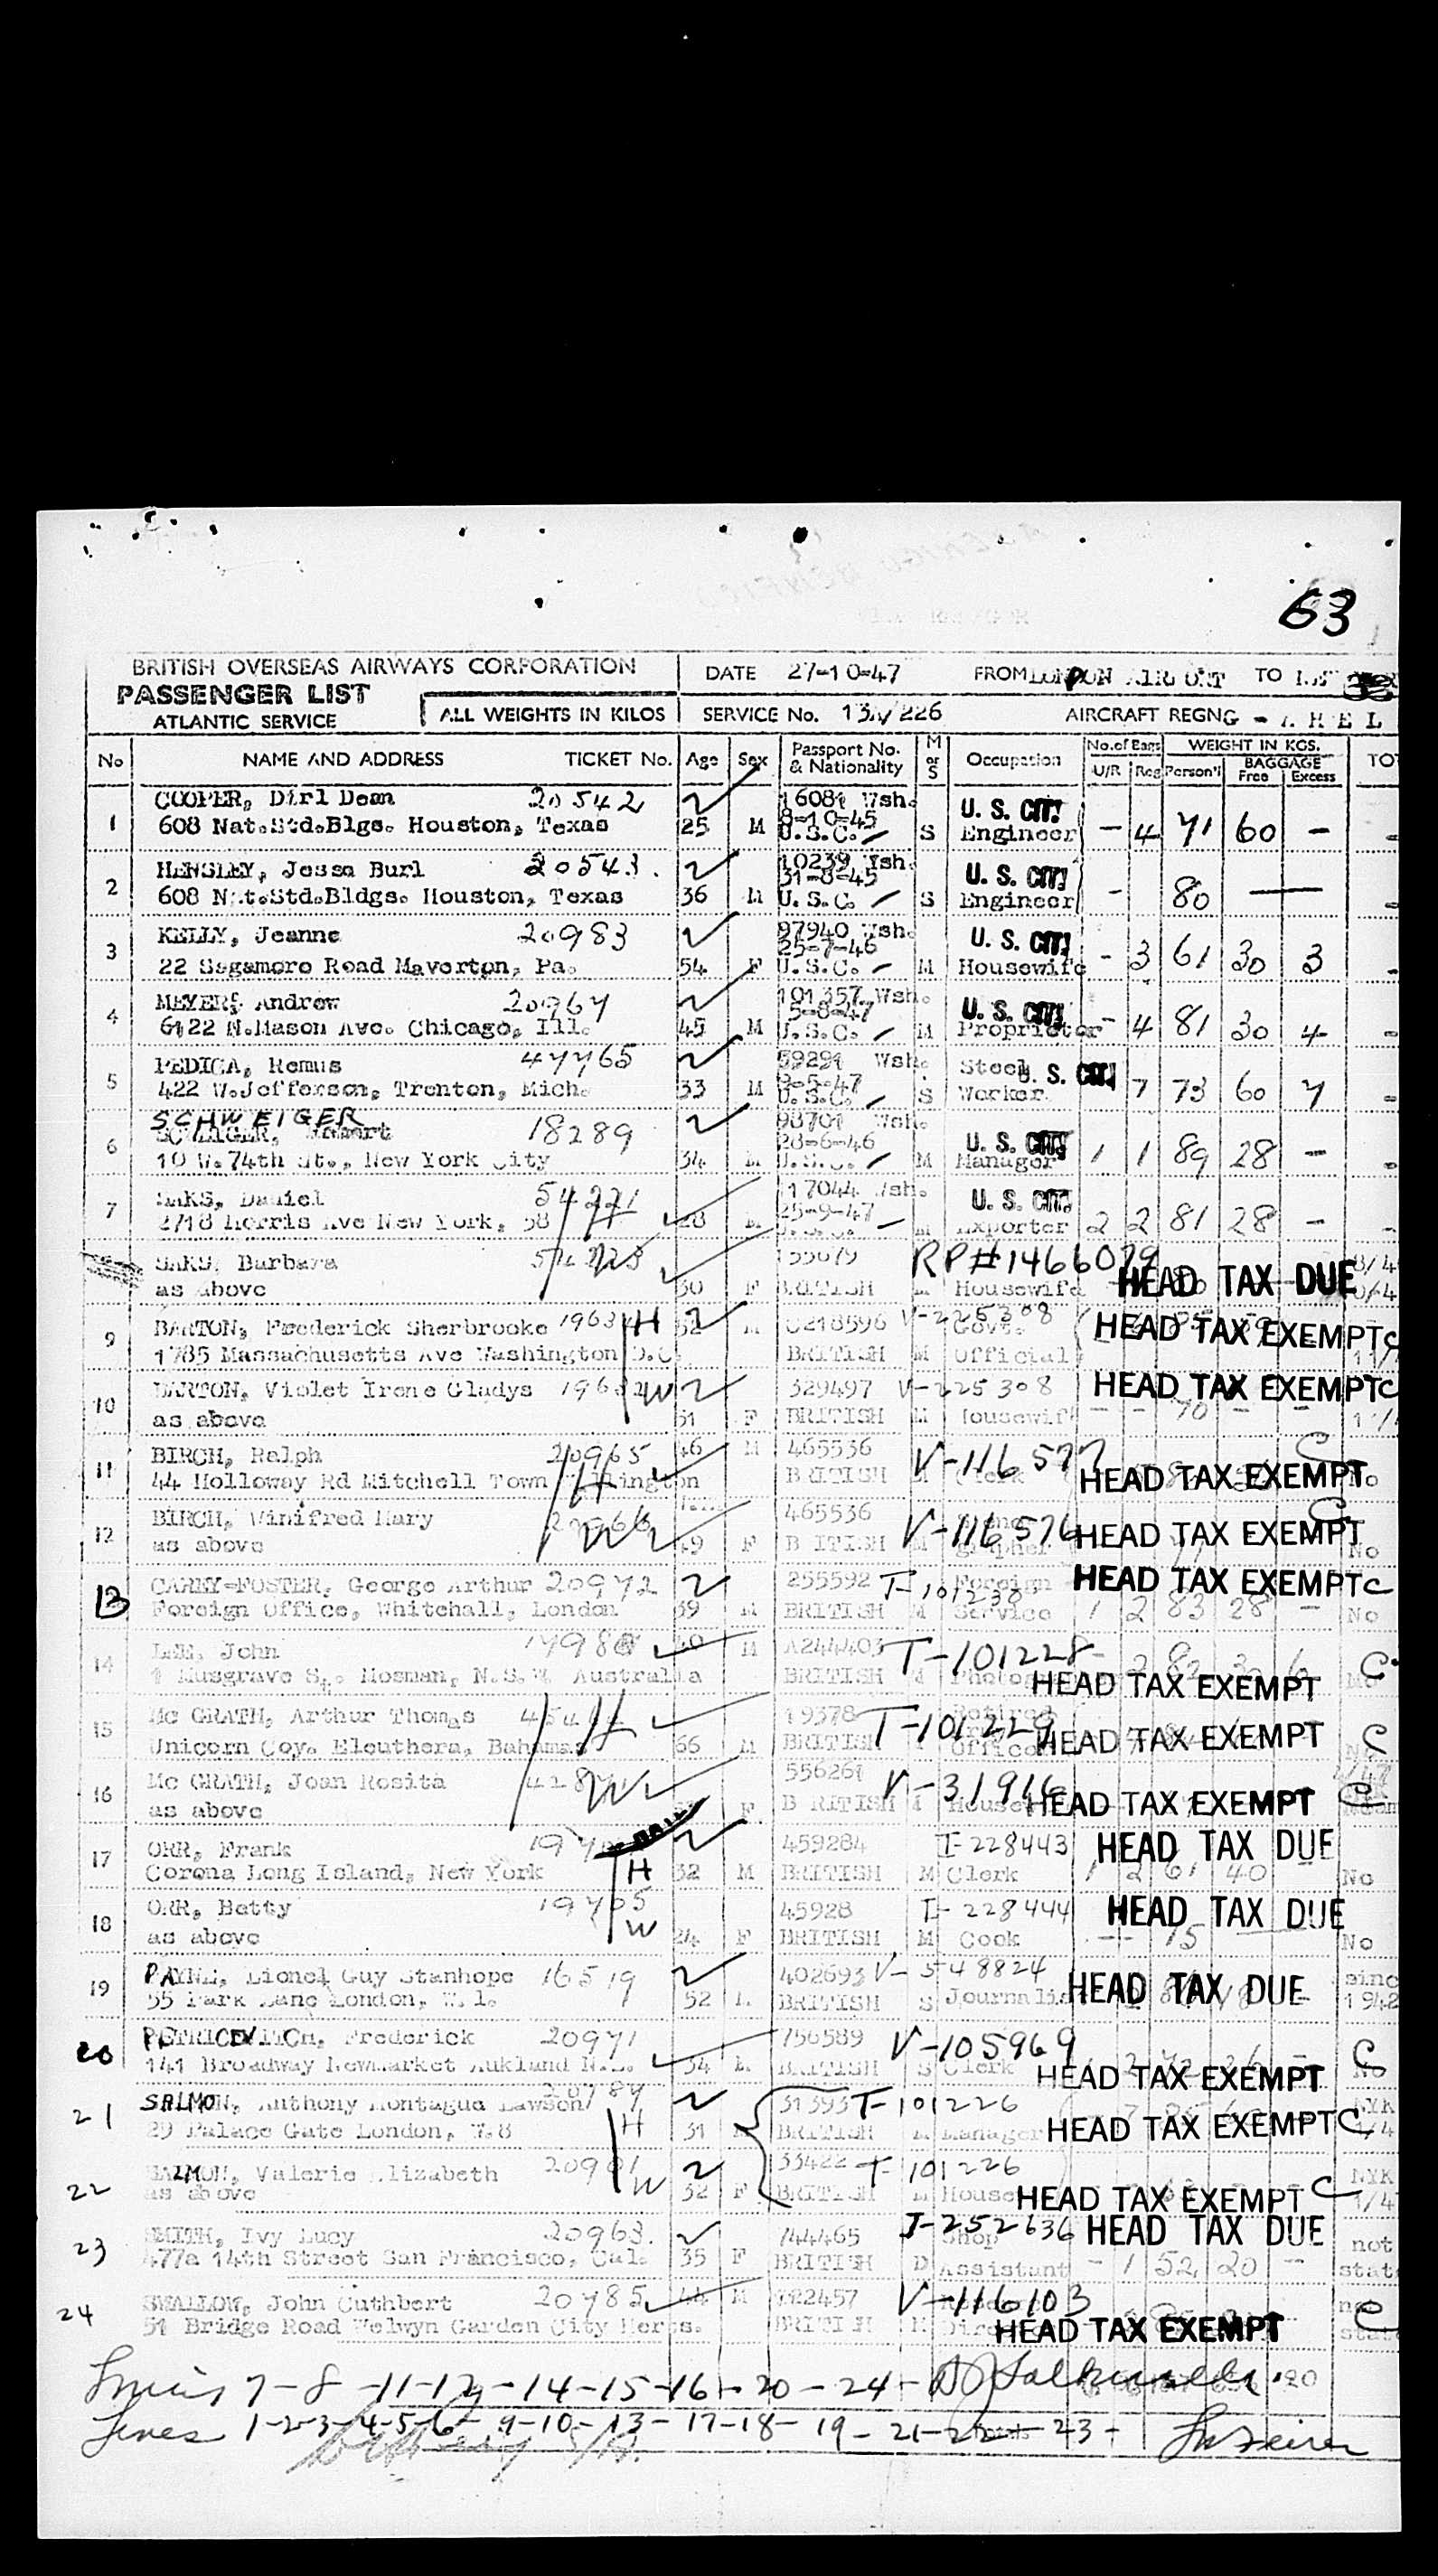 63
BRITISH OVERSEAS AIRWAYS CORPORATION DATE 27-10-47 FROM LONDON AIRPORT TO
PASSENGER LIST
ATLANTIC SERVICE ALL WEIGHTS IN KILOS SERVICE No. 13A/226 AIRCRAFT REGN G - A H E L
No NAME AND ADDRESS TICKET No. Age Sex Passport No. & Nationality M or S Occupation No. of Bags U/R Reg WEIGHT IN KGS. Person'l BAGGAGE Free Excess
COOPER, Dirl Dean 20542 16081 Wsh. 8-10-45 U. S. CIT.
1 608 Nat.Std.Blgs. Houston, Texas 25 M U.S.C. S Engineer - 4 71 60 -
HENSLEY, Jessa Burl 20543. 10239 Wsh. 31-8-45 U. S. CIT.
2 608 Nat.Std.Bldgs. Houston, Texas 36 M U.S.C. S Engineer - 80
KELLY, Jeanne 20983 97940 Wsh. 25-7-46 U. S. CIT.
3 22 Sagamore Road Maverton, Pa. 54 F U.S.C. M Housewife - 3 61 30 3
MEYERS Andrew 20967 101357 Wsh. 5-8-47 U. S. CIT.
4 6122 N.Mason Ave. Chicago, Ill. 45 M U.S.C. M Proprietor - 4 81 30 4
PEDICA, Remus 47765 59291 Wsh. Steel U. S. CIT.
5 422 W.Jefferson, Trenton, Mich. 33 M U.S.C. S Worker 7 73 60 7
SCHWEIGER 18289 98701 Wsh. 28-6-46 U. S. CIT.
6 10 W.74th St., New York City 34 M U.S.C. M Manager 1 1 89 28 -
SAKS, Daniel 54221 117044 Wsh. 25-9-47 U. S. CIT.
7 2718 Morris Ave New York, 58 H 28 M U.S.C. M Exporter 2 2 81 28 -
SAKS, Barbara W RP#1466079
as above 30 F BRITISH Housewife HEAD TAX DUE
9 BARTON, Frederick Sherbrooke H 52 M C218596 V-225308 Govt. HEAD TAX EXEMPT C
1785 Massachusetts Ave Washington D.C. BRITISH M Official
BARTON, Violet Irene Gladys 19632 W 329497 V-225308 HEAD TAX EXEMPT C
10 as above 51 F BRITISH M Housewife - - 70 -
BIRCH, Ralph 20965 46 M 465536 V-116577 C
11 44 Holloway Rd Mitchell Town H BRITISH M Clerk HEAD TAX EXEMPT No
BIRCH, Winifred Mary 20966 W 465536 V-116576 C
12 as above 49 F BRITISH M HEAD TAX EXEMPT No
13 CAREY-FOSTER, George Arthur 20972 255592 T-101230 Foreign HEAD TAX EXEMPT C
Foreign Office, Whitchall, London 39 M BRITISH M Service 1 2 83 28 - No
LEE, John 40 M A244403 T-101228 C
14 1 Musgrave St. Mosman, N.S.W Australia BRITISH M HEAD TAX EXEMPT
15 Mc GRATH, Arthur Thomas H 19378 T-101229 Retired HEAD TAX EXEMPT C
Unicorn Coy. Eleuthera, Bahamas 66 M BRITISH Officer
Mc GRATH, Joan Rosita W 556261 V-31916
16 as above F BRITISH M HEAD TAX EXEMPT C
17 ORR, Frank 459284 I-228443 HEAD TAX DUE
Corona Long Island, New York H 32 M BRITISH M Clerk 1 2 61 40 No
ORR, Betty 19705 45928 I-228444 HEAD TAX DUE
18 as above W 24 F BRITISH M Cook -- 75 No
PAYNE, Lionel Guy Stanhope 16519 402693 V-548824
19 55 Park Lane London, W.1. 52 M BRITISH S Journalist HEAD TAX DUE 1942
PETRICEVITCH, Frederick 20971 756589 V-105969 C
20 141 Broadway Newmarket Aukland N.Z. 34 M BRITISH S Clerk HEAD TAX EXEMPT No
SALMON, Anthony Montague Lawson 20787 31393 T-101226 NYK
21 29 Palace Gate London, W.8 H 31 M BRITISH M Manager HEAD TAX EXEMPT C
SALMON, Valerie Elizabeth 33422 T-101226 NYK
22 as above W 32 F BRITISH M HEAD TAX EXEMPT C
SMITH, Ivy Lucy 20963. 744465 I-252636 Shop HEAD TAX DUE not
23 477a 14th Street San Francisco, Cal. 35 F BRITISH D Assistant - 1 52 20 --
SWALLOW, John Cuthbert 20785 44 M V-116103 C
24 51 Bridge Road Welwyn Garden City Herts. BRITISH M HEAD TAX EXEMPT
7 - 8 - 11 - 12 - 14 - 15 - 16 - 20 - 24 -
Lines 1-2-3-4-5-6- 9-10-13- 17-18- 19- 21-22- 23-